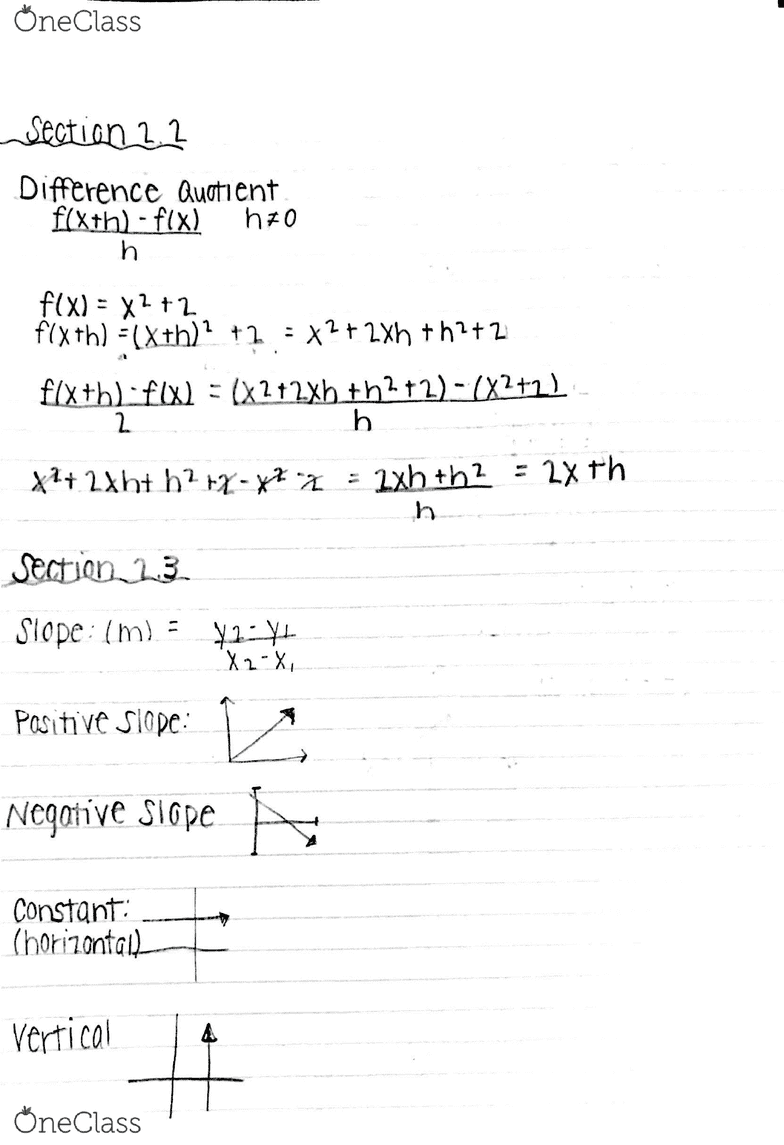 OneClass
Section 2.2
Difference Quotient
f(x+h) - f(x) h≠0
h
f(x) = x² + 2
f(x+h) = (x+h)² + 2 = x² + 2xh + h² + 2
f(x+h) - f(x) = (x2 + 2xh + h² + 2) - (x² + 2)
2 h
x² + 2xh + h² + 2 - x² - 2 = 2xh + h² = 2x + h
h
Section 2.3
Slope: (m) = y2 - y1
x2 - x1
Positive slope:
Negative Slope
Constant:
(horizontal)
Vertical
OneClass